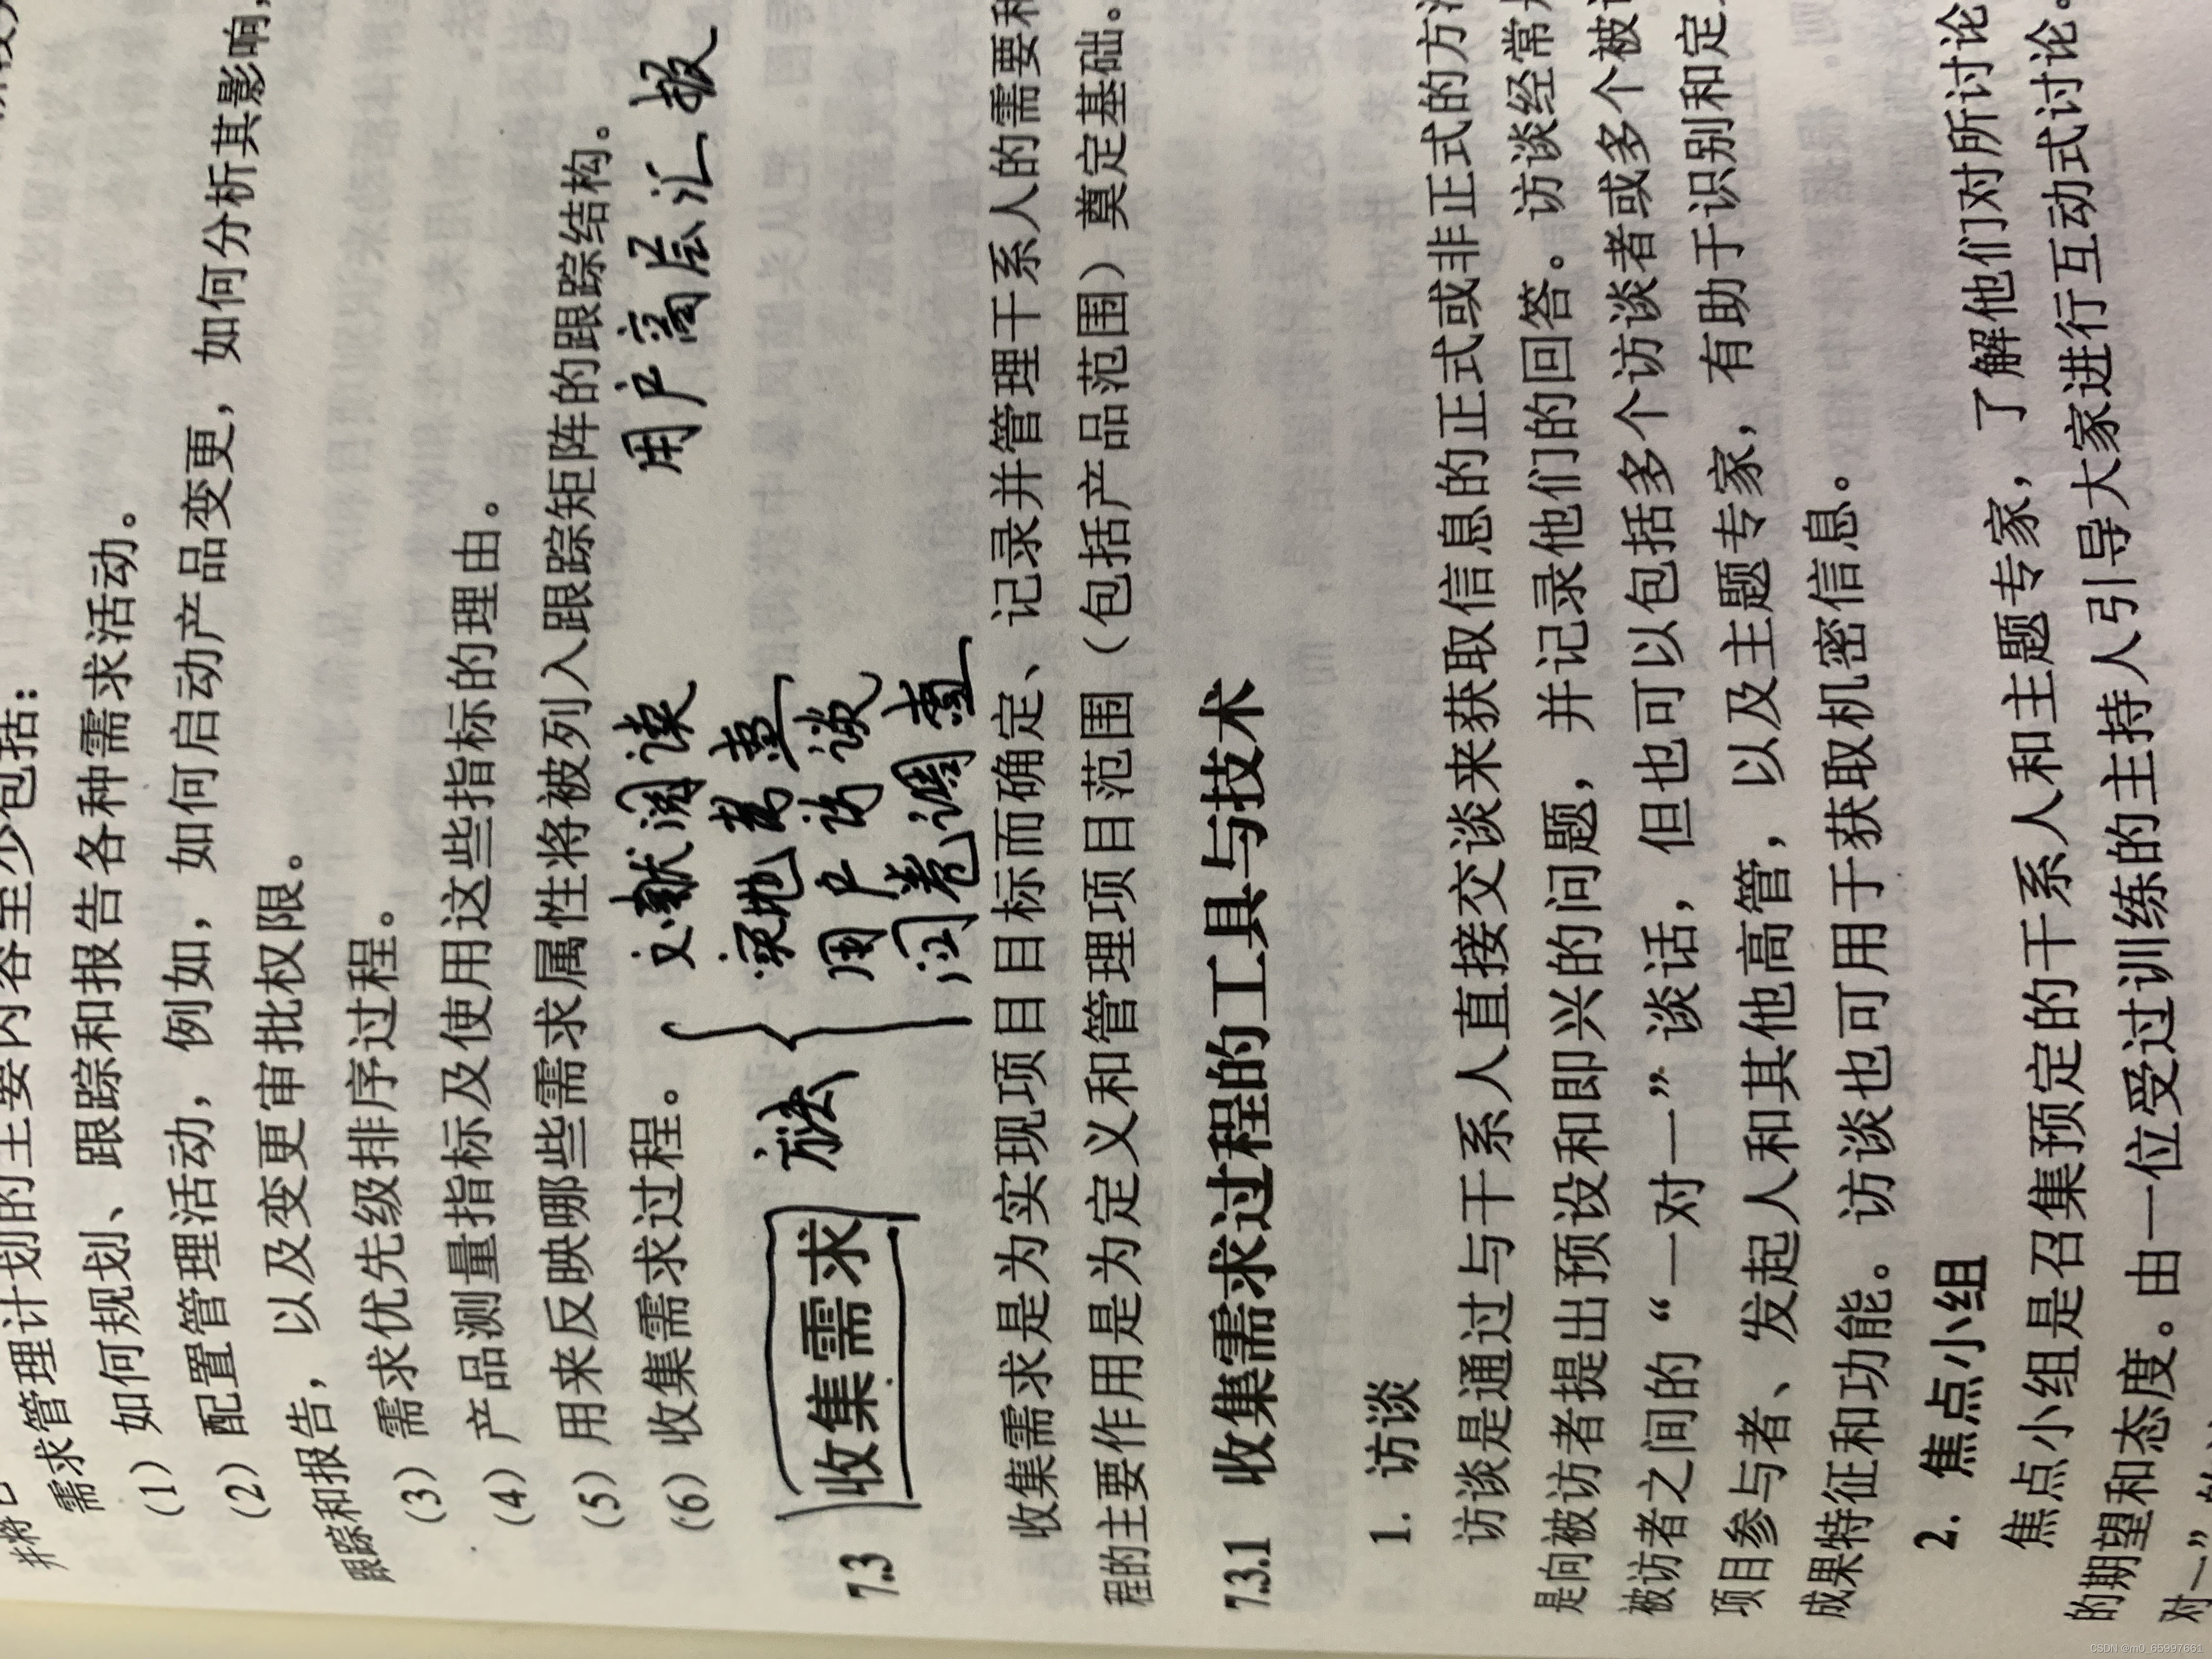 并将已
需求管理计划的主要内容至少包括：
（1）如何规划、跟踪和报告各种需求活动。
（2）配置管理活动，例如，如何启动产品变更，如何分析其影响，
跟踪和报告，以及变更审批权限。
（3）需求优先级排序过程。
（4）产品测量指标及使用这些指标的理由。
（5）用来反映哪些需求属性将被列入跟踪矩阵的跟踪结构。
（6）收集需求过程。
用户高层汇报
文献阅读
实地考查
用户访谈
问卷调查
方法
7.3 收集需求
收集需求是为实现项目目标而确定、记录并管理干系人的需要和
程的主要作用是为定义和管理项目范围（包括产品范围）奠定基础。
7.3.1 收集需求过程的工具与技术
1. 访谈
访谈是通过与干系人直接交谈来获取信息的正式或非正式的方
是向被访者提出预设和即兴的问题，并记录他们的回答。访谈经常
被访者之间的“一对一”谈话，但也可以包括多个访谈者或多个被
项目参与者、发起人和其他高管，以及主题专家，有助于识别和定
成果特征和功能。访谈也可用于获取机密信息。
2. 焦点小组
焦点小组是召集预定的干系人和主题专家，了解他们对所讨论
的期望和态度。由一位受过训练的主持人引导大家进行互动式讨论。
对一”
CSDN @m0_65997661